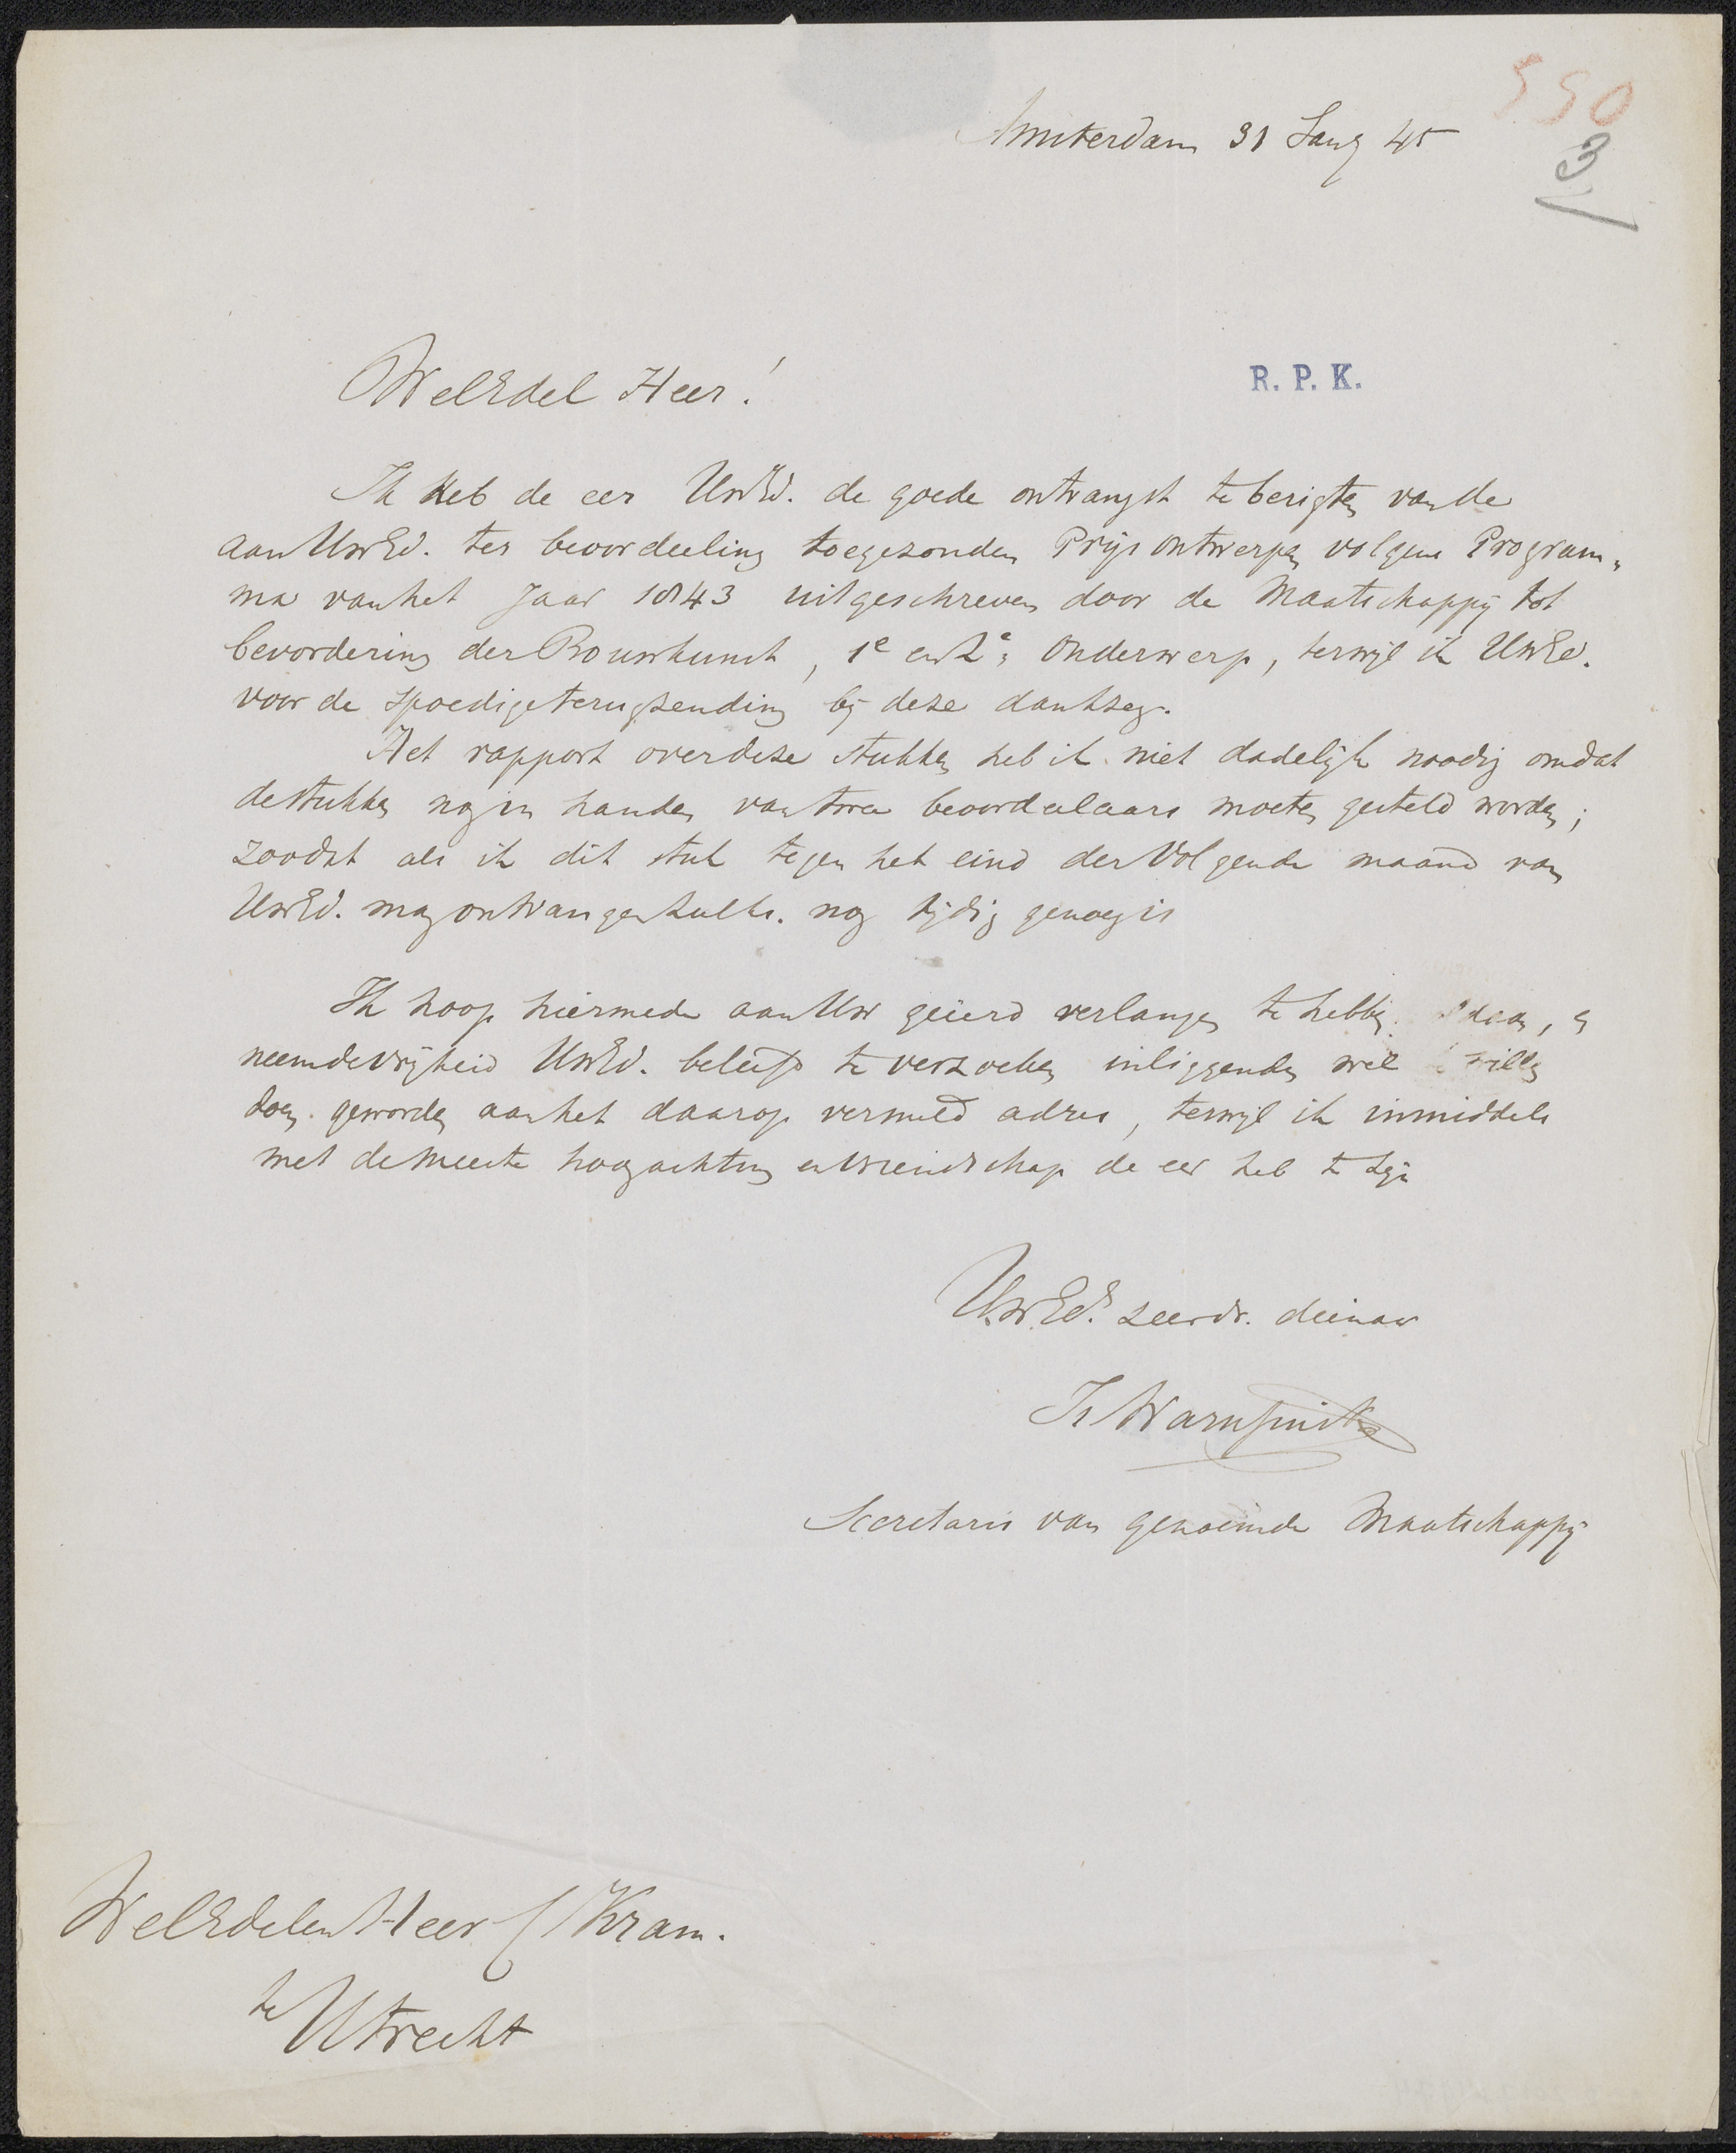 550
Amsterdam 31 Janÿ 45
3
WelEdel Heer!
R. P. K.
Ik heb de eer UwEd. de goede ontvangst te berigten van de
aan UwEd. ter beoordeeling toegezonden Prijsontwerpen volgens Program„
ma van het Jaar 1843 uitgeschreven door de Maatschappij tot
bevordering der Bouwkunst, 1e en 2e Onderwerp, terwijl ik UwEd.
voor de spoedige terugzending bij deze dankzeg.
Het rapport over deze stukken heb ik niet dadelijk noodig omdat
de stukken nog in handen van twee beoordeelaars moeten gesteld worden;
zoodat als ik dit stuk tegen het eind der volgende maand van
UwEd. mag ontvangen zulks. nog tijdig genoeg is
Ik hoop hiermede aan Uw geëerd verlangen te hebben daan, en
neem de vrijheid UwEd. beleefd te verzoeken inliggenden wel willen
doen geworden aan het daarop vermeld adres, terwijl ik inmiddels
met de meeste hoogachting en vriendschap de eer heb te zijn
UwEd. zeer dr. dienaar
Is Warnsinck
Secretaris van genoemde Maatschappij
WelEdelen Heer C Kram.
te Utrecht